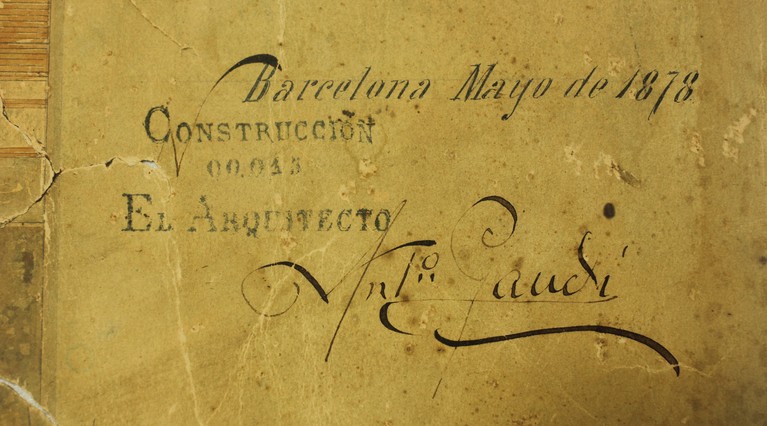 Barcelona Mayo de 1878
CONSTRUCCIÓN
00.015
EL ARQUITECTO
Antº Gaudí